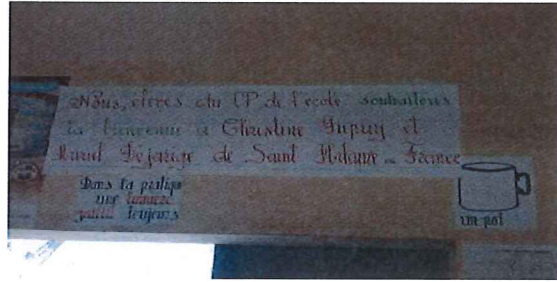 Nous, élèves du CP de l'école souhaitons
la bienvenue à Christine Dupuy et
Muriel Dejarige de Saint en France
Dans la
une
toujours
un pot